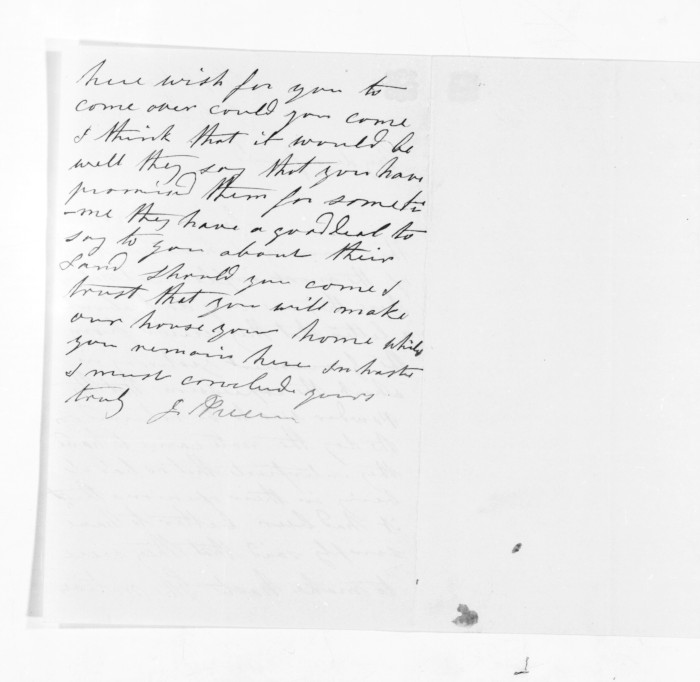 here wish for you to
come over could you come
I think that it would be
well they say that you have
promised them for someti
-me they have a good deal to
say to you about their
Land should you come I
trust that you will make
our house your home while
you remain here In haste
I must conclude yours
truly J